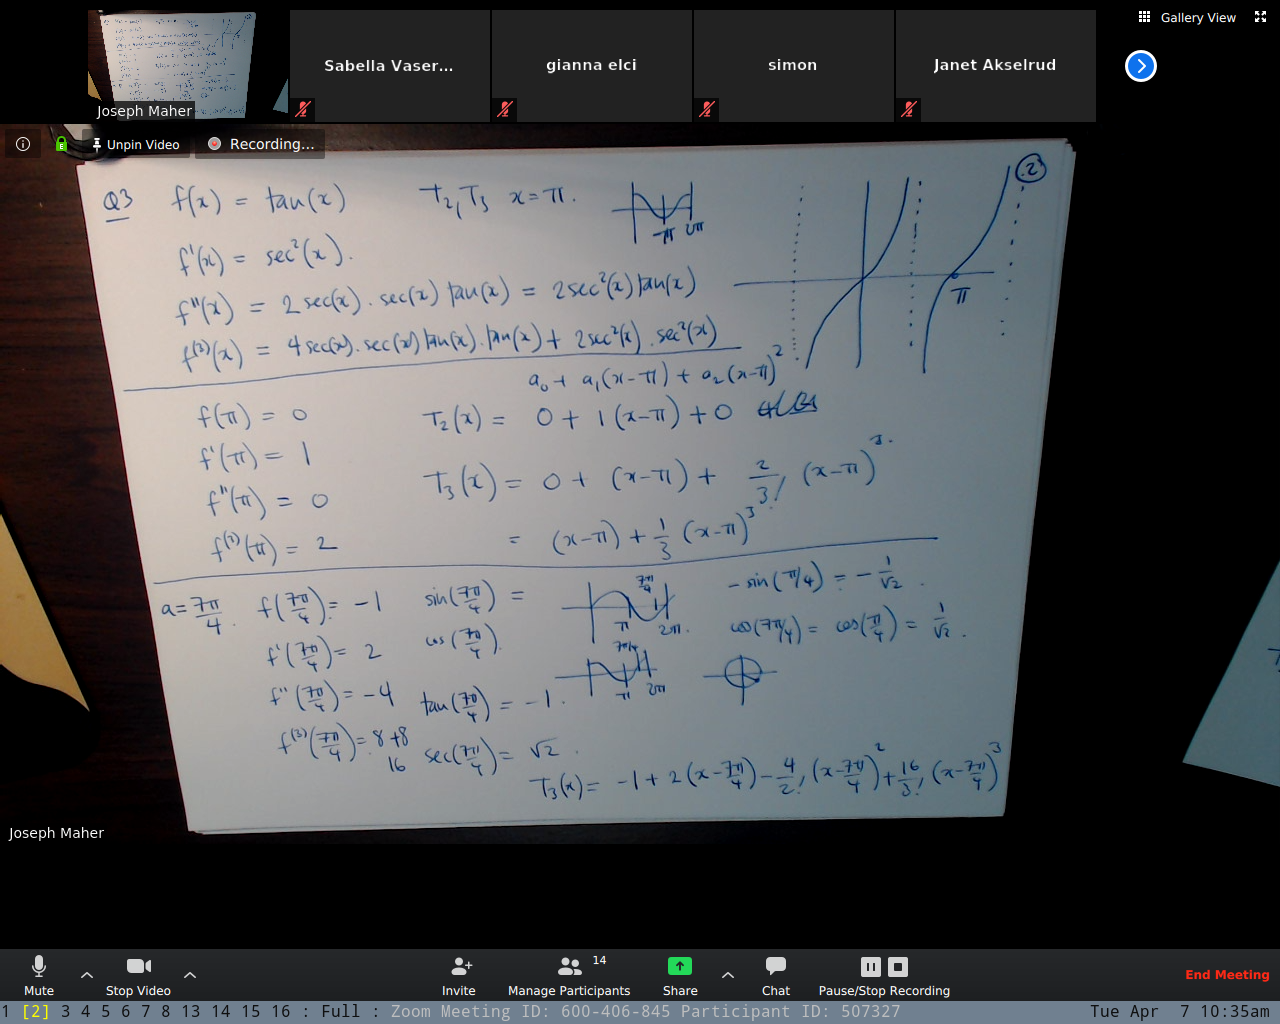 Gallery View
Sabella Vaser...
gianna elci
simon
Janet Akselrud
Joseph Maher
Unpin Video
Recording...
2
Q3 f(x) = tan(x) T₂, T₃ x = π.
π 2π
f'(x) = sec²(x).
f''(x) = 2 sec(x) . sec(x) tan(x) = 2 sec²(x) tan(x)
π
f⁽³⁾(x) = 4 sec(x) . sec(x) tan(x) . tan(x) + 2 sec²(x) . sec²(x)
a₀ + a₁(x-π) + a₂(x-π)²
f(π) = 0 T₂(x) = 0 + 1(x-π) + 0
f'(π) = 1
T₃(x) = 0 + (x-π) + 2/3! (x-π)³.
f''(π) = 0
f⁽³⁾(π) = 2 = (x-π) + 1/3 (x-π)³
a = 7π/4. f(7π/4) = -1 sin(7π/4) = 7π/4 π 2π. -sin(π/4) = -1/√2.
f'(7π/4) = 2 cos(7π/4). 7π/4 π 2π cos(7π/4) = cos(π/4) = 1/√2.
f''(7π/4) = -4 tan(7π/4) = -1.
f⁽³⁾(7π/4) = 8+8 sec(7π/4) = √2.
16
T₃(x) = -1 + 2(x-7π/4) - 4/2! (x-7π/4)² + 16/3! (x-7π/4)³
Joseph Maher
Mute
Stop Video
Invite
14
Manage Participants
Share
Chat
Pause/Stop Recording
End Meeting
1 [2] 3 4 5 6 7 8 13 14 15 16 : Full : Zoom Meeting ID: 600-406-845 Participant ID: 507327 Tue Apr 7 10:35am